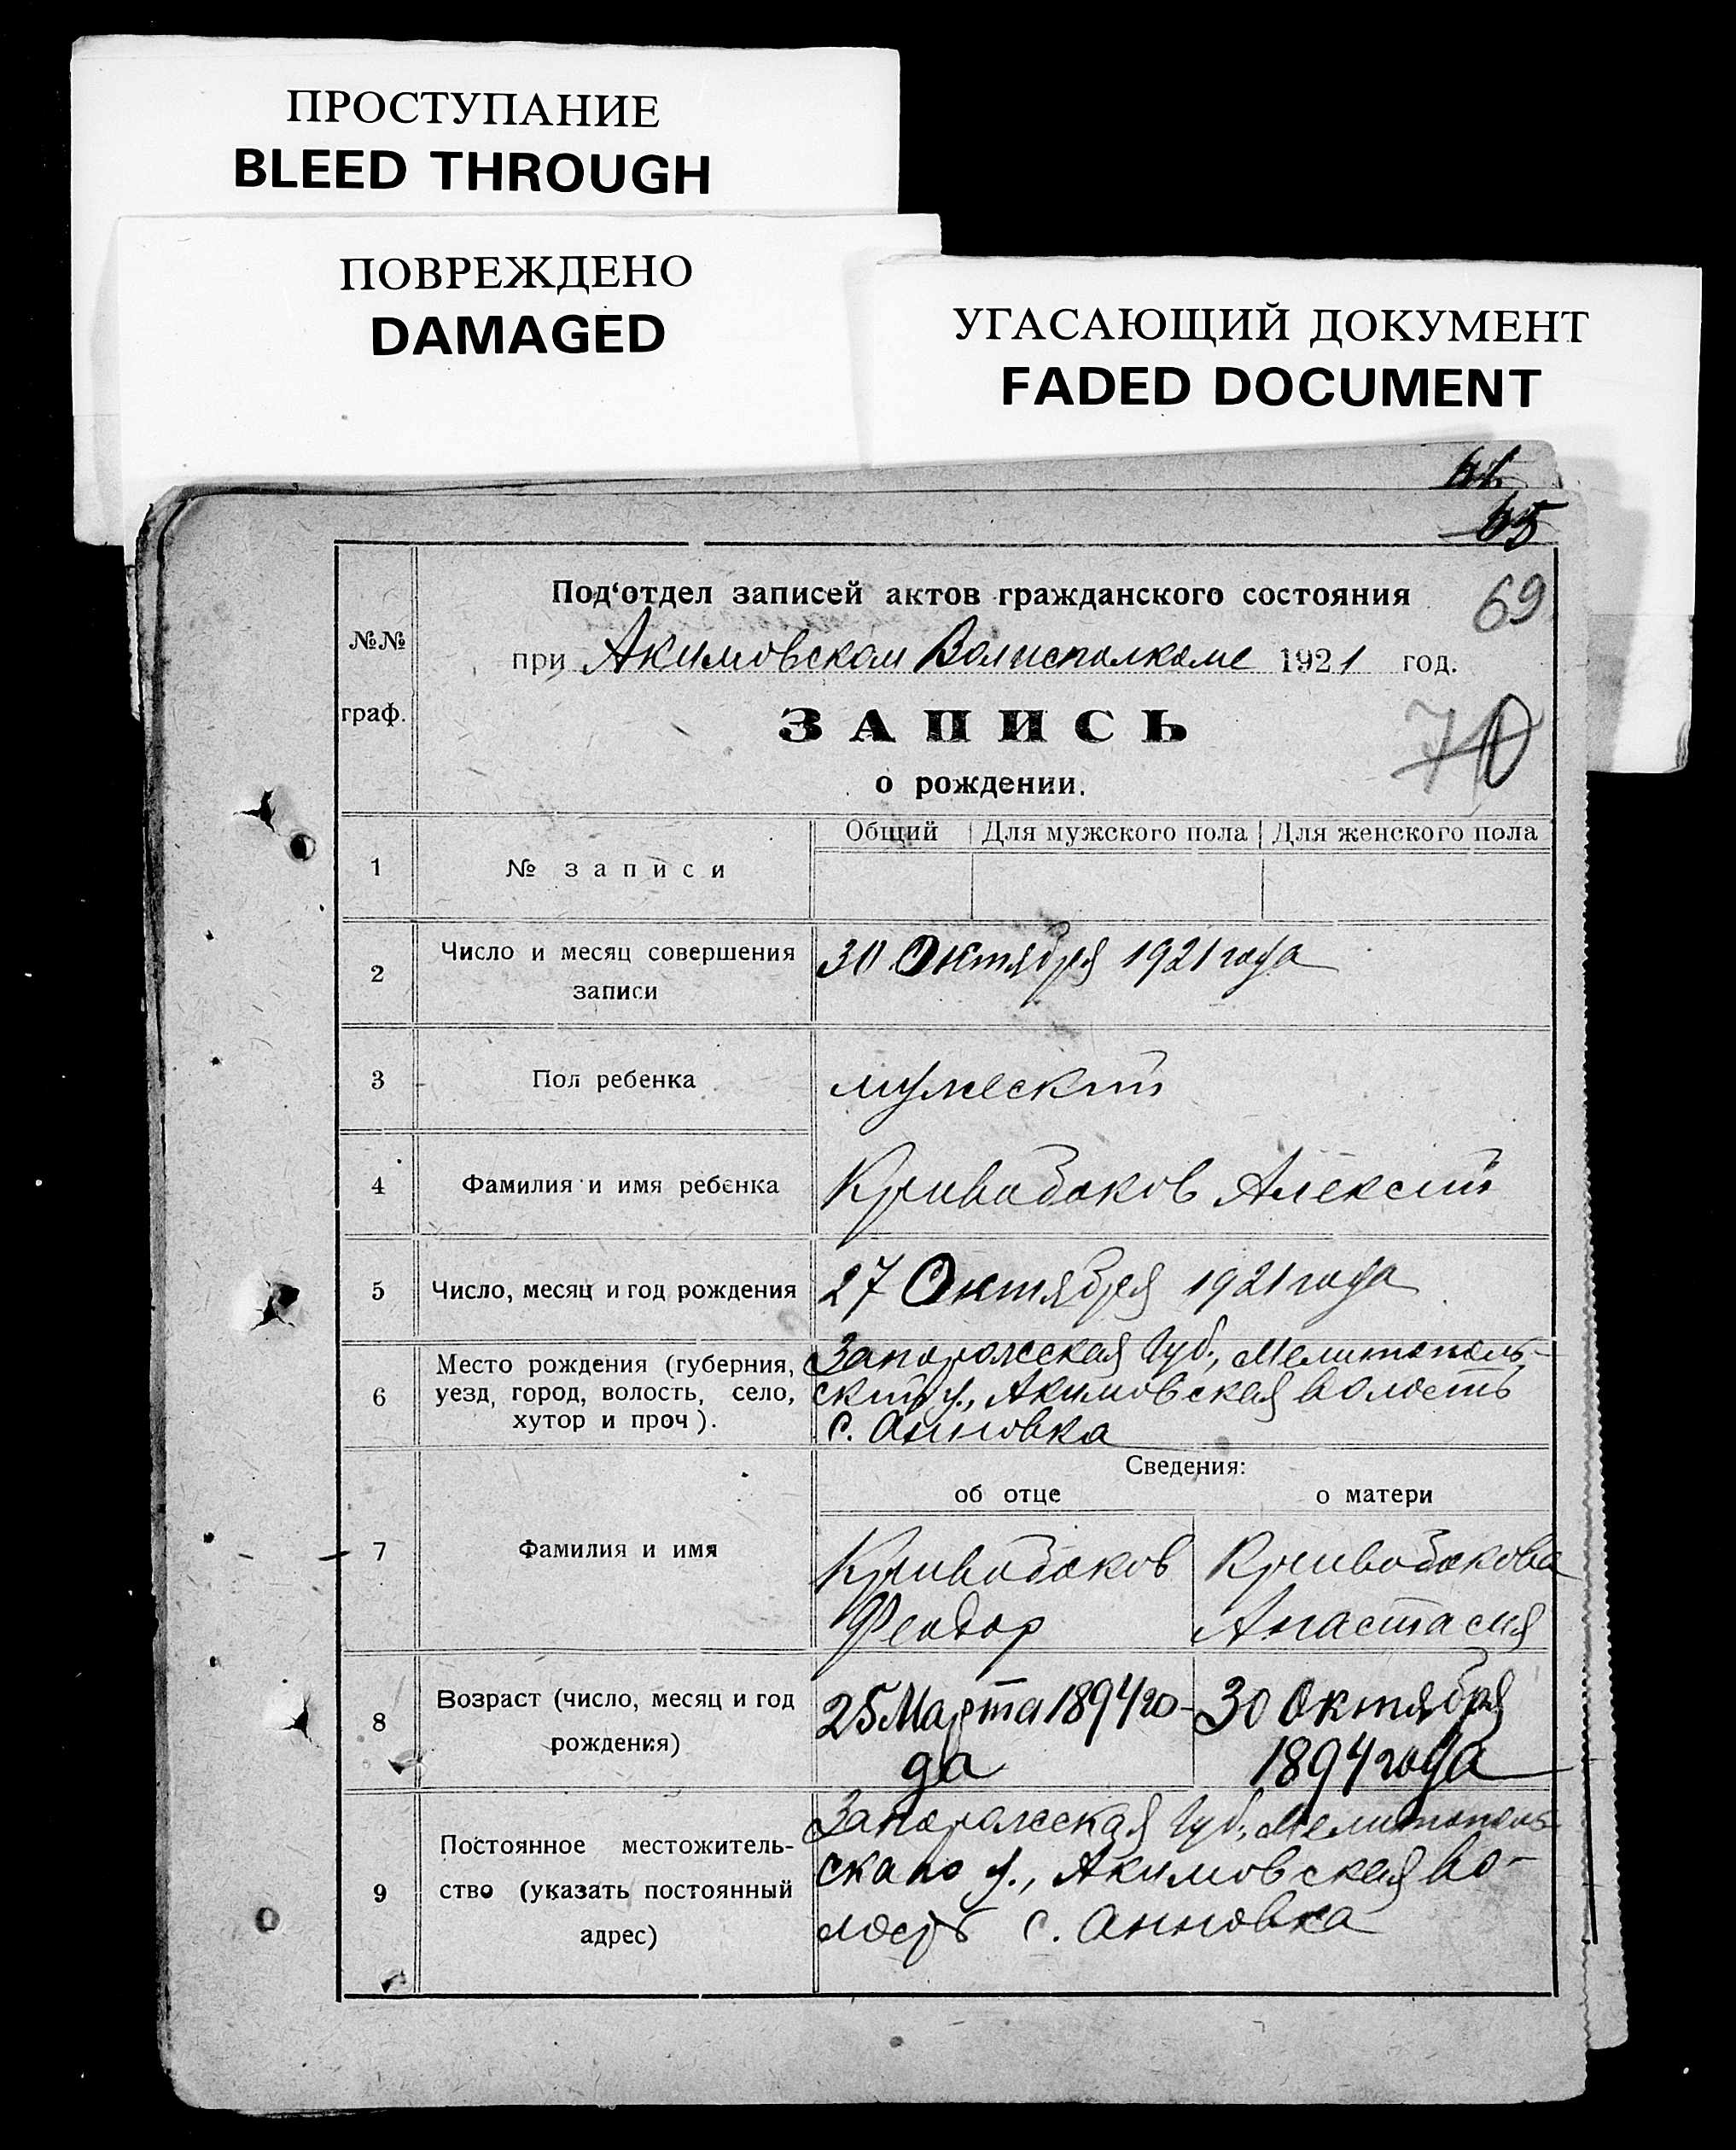 ПРОСТУПАНИЕ
BLEED THROUGH
ПОВРЕЖДЕНО
DAMAGED
УГАСАЮЩИЙ ДОКУМЕНТ
FADED DOCUMENT
65
69
№№
граф.
Под‘отдел записей актов гражданского состояния
при Акимовском Волисполкоме 1921 год.
ЗАПИСЬ
70
о рождении.
1 № записи Общий Для мужского пола Для женского пола
2 Число и месяц совершения
записи
30 Октября 1921 года
3 Пол ребенка мужеский
4 Фамилия и имя ребенка Кривобоков Алексей
5 Число, месяц и год рождения 27 Октября 1921 года
6 Место рождения (губерния,
уезд, город, волость, село,
хутор и проч).
Запорожская Губ., Мелитополь-
ский у., Акимовская волость
с. Анновка
Сведения:
об отце о матери
7 Фамилия и имя
Кривобоков Кривобокова
Феодор Анастасия
8 Возраст (число, месяц и год
рождения)
25 Марта 1894 го-
да
30 Октября
1894 года
9 Постоянное местожитель-
ство (указать постоянный
адрес)
Запорожская Губ., Мелитополь
ского у., Акимовская во-
лость с. Анновка